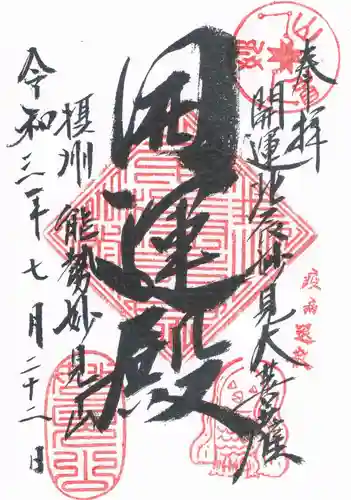 奉拝
開運北辰妙見大菩薩
疫病退散
開運殿
摂州 能勢妙見山
令和三年七月二十二日